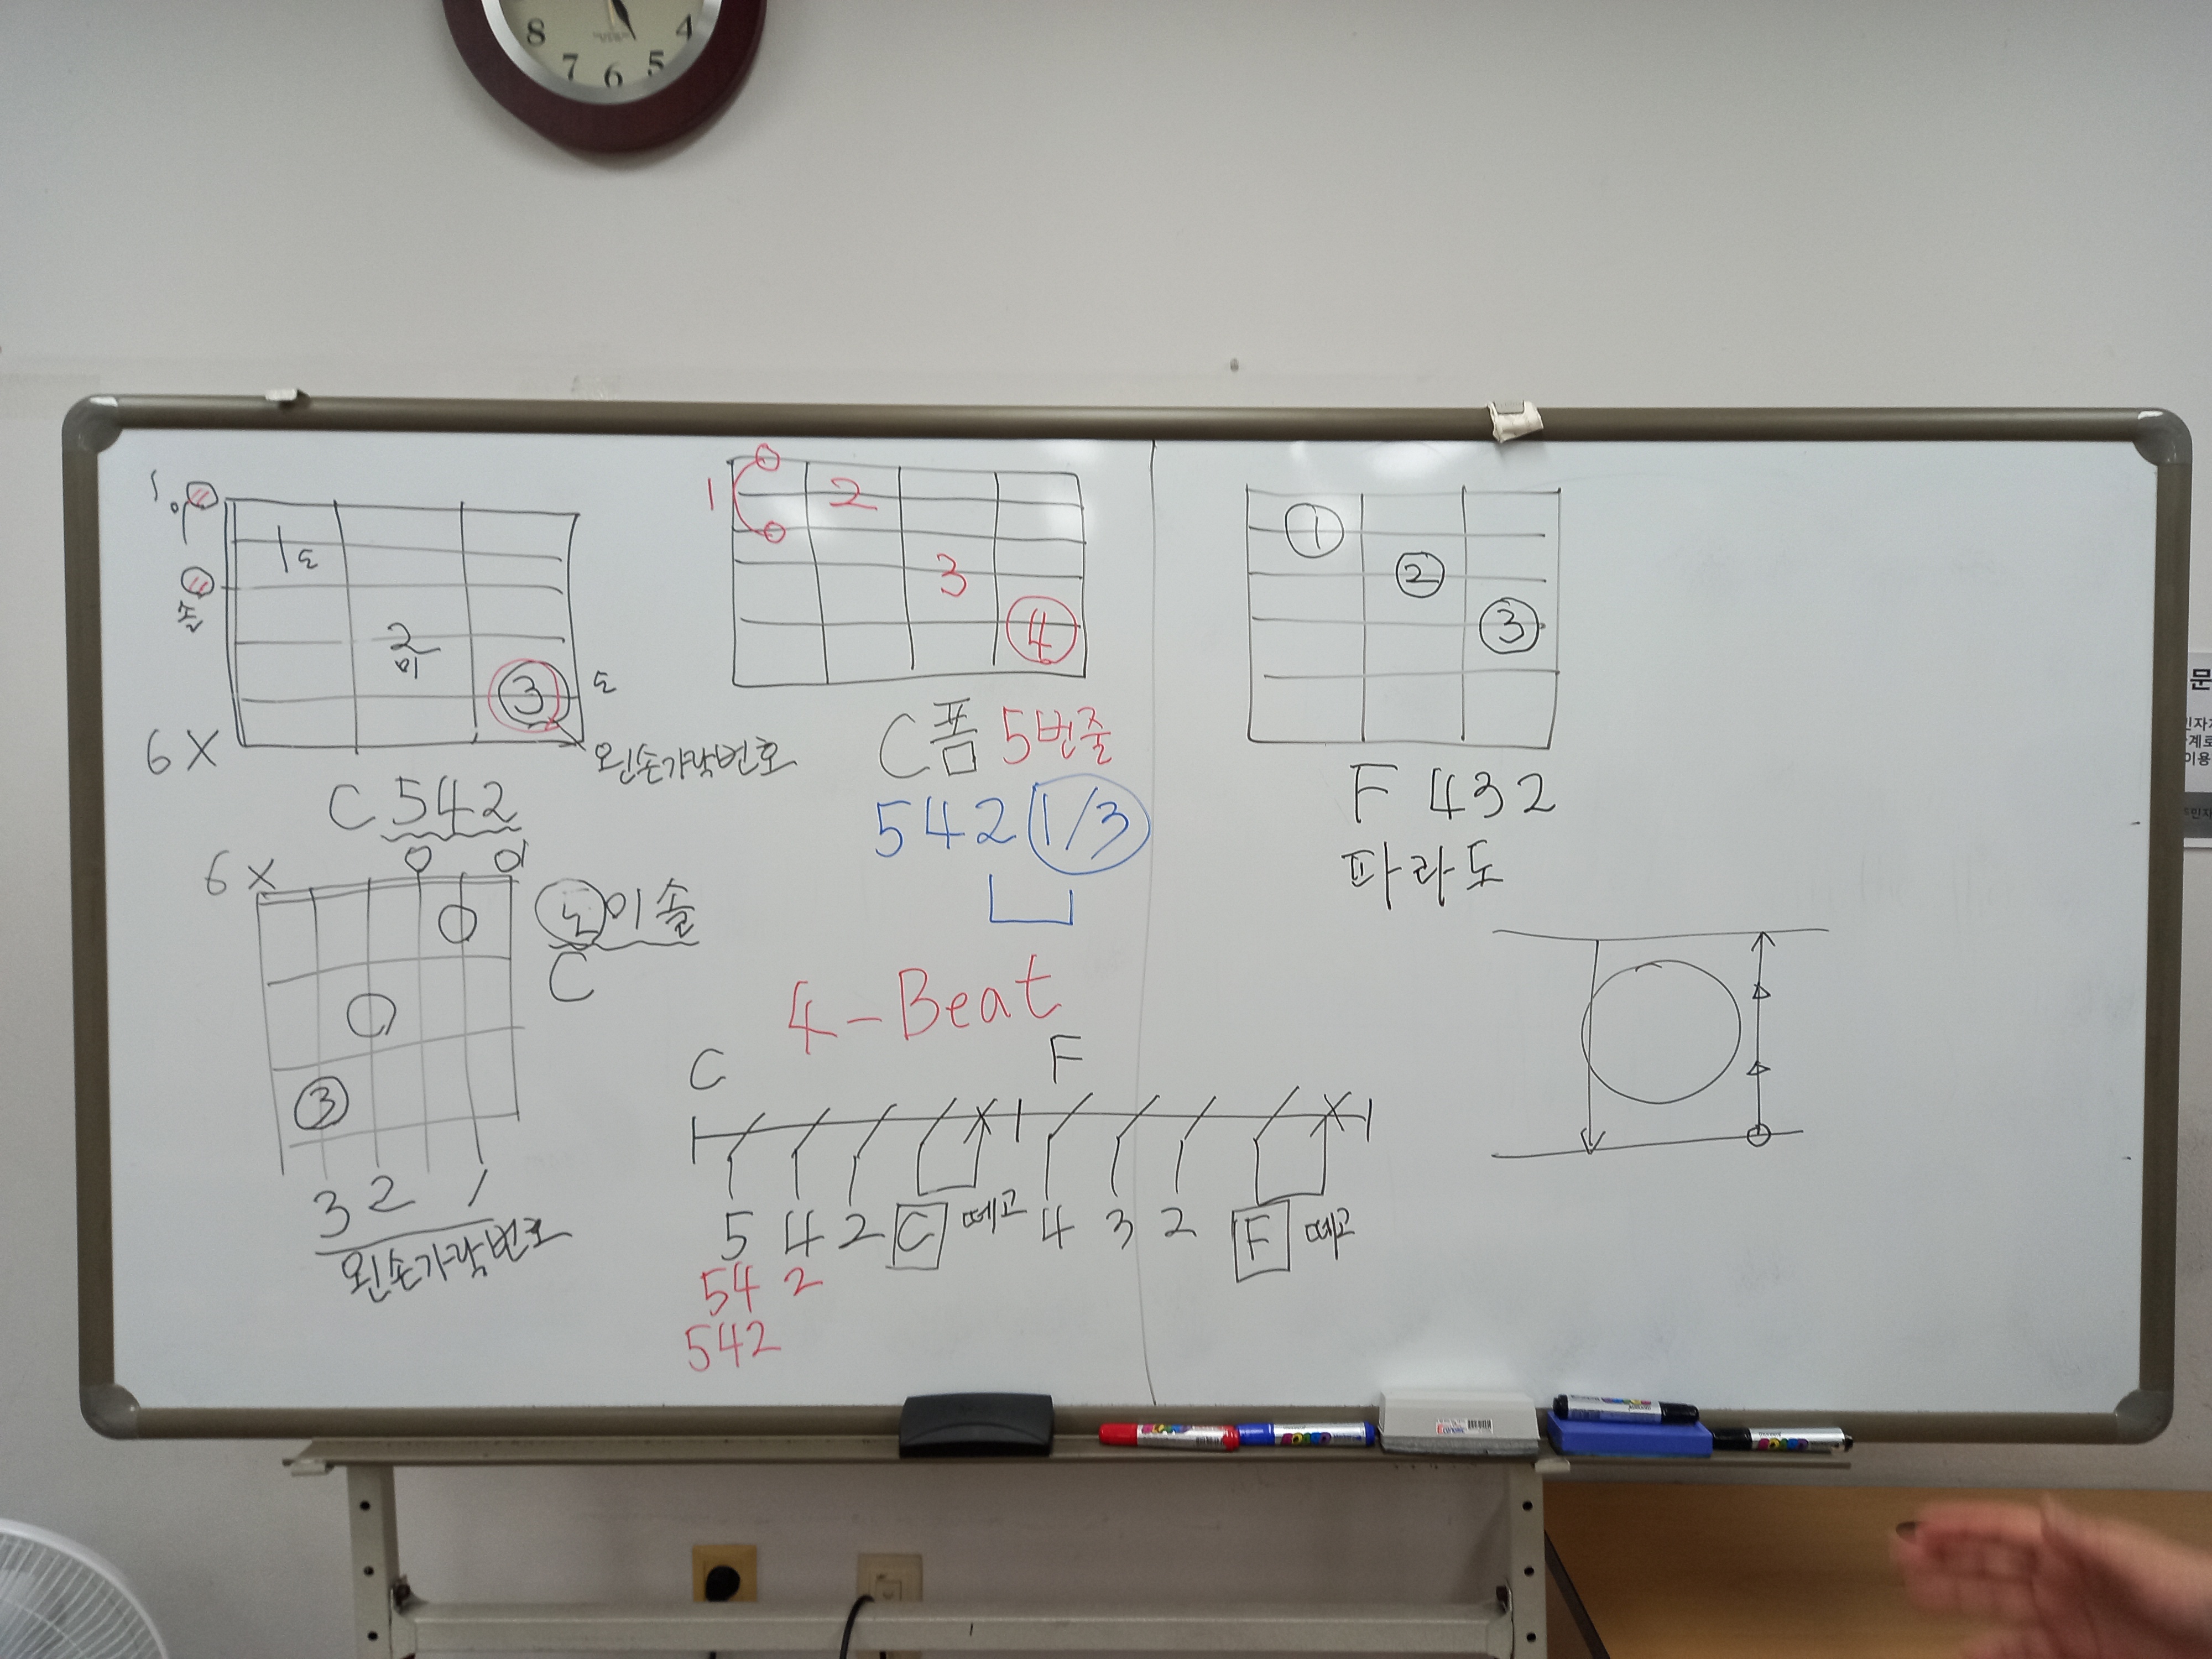 8 7 6 5 4
1
이
1 도
솔
2
미
3 도
6 X
왼손가락번호
C 542
6 X
0 0
도미솔
C
3
3 2 1
왼손가락번호
1 2
3
4
C폼 5번줄
542 1/3
1
2
3
F 432
파라도
4-Beat
C F
5 4 2 C 떼고 4 3 2 F 떼고
54 2
542
문